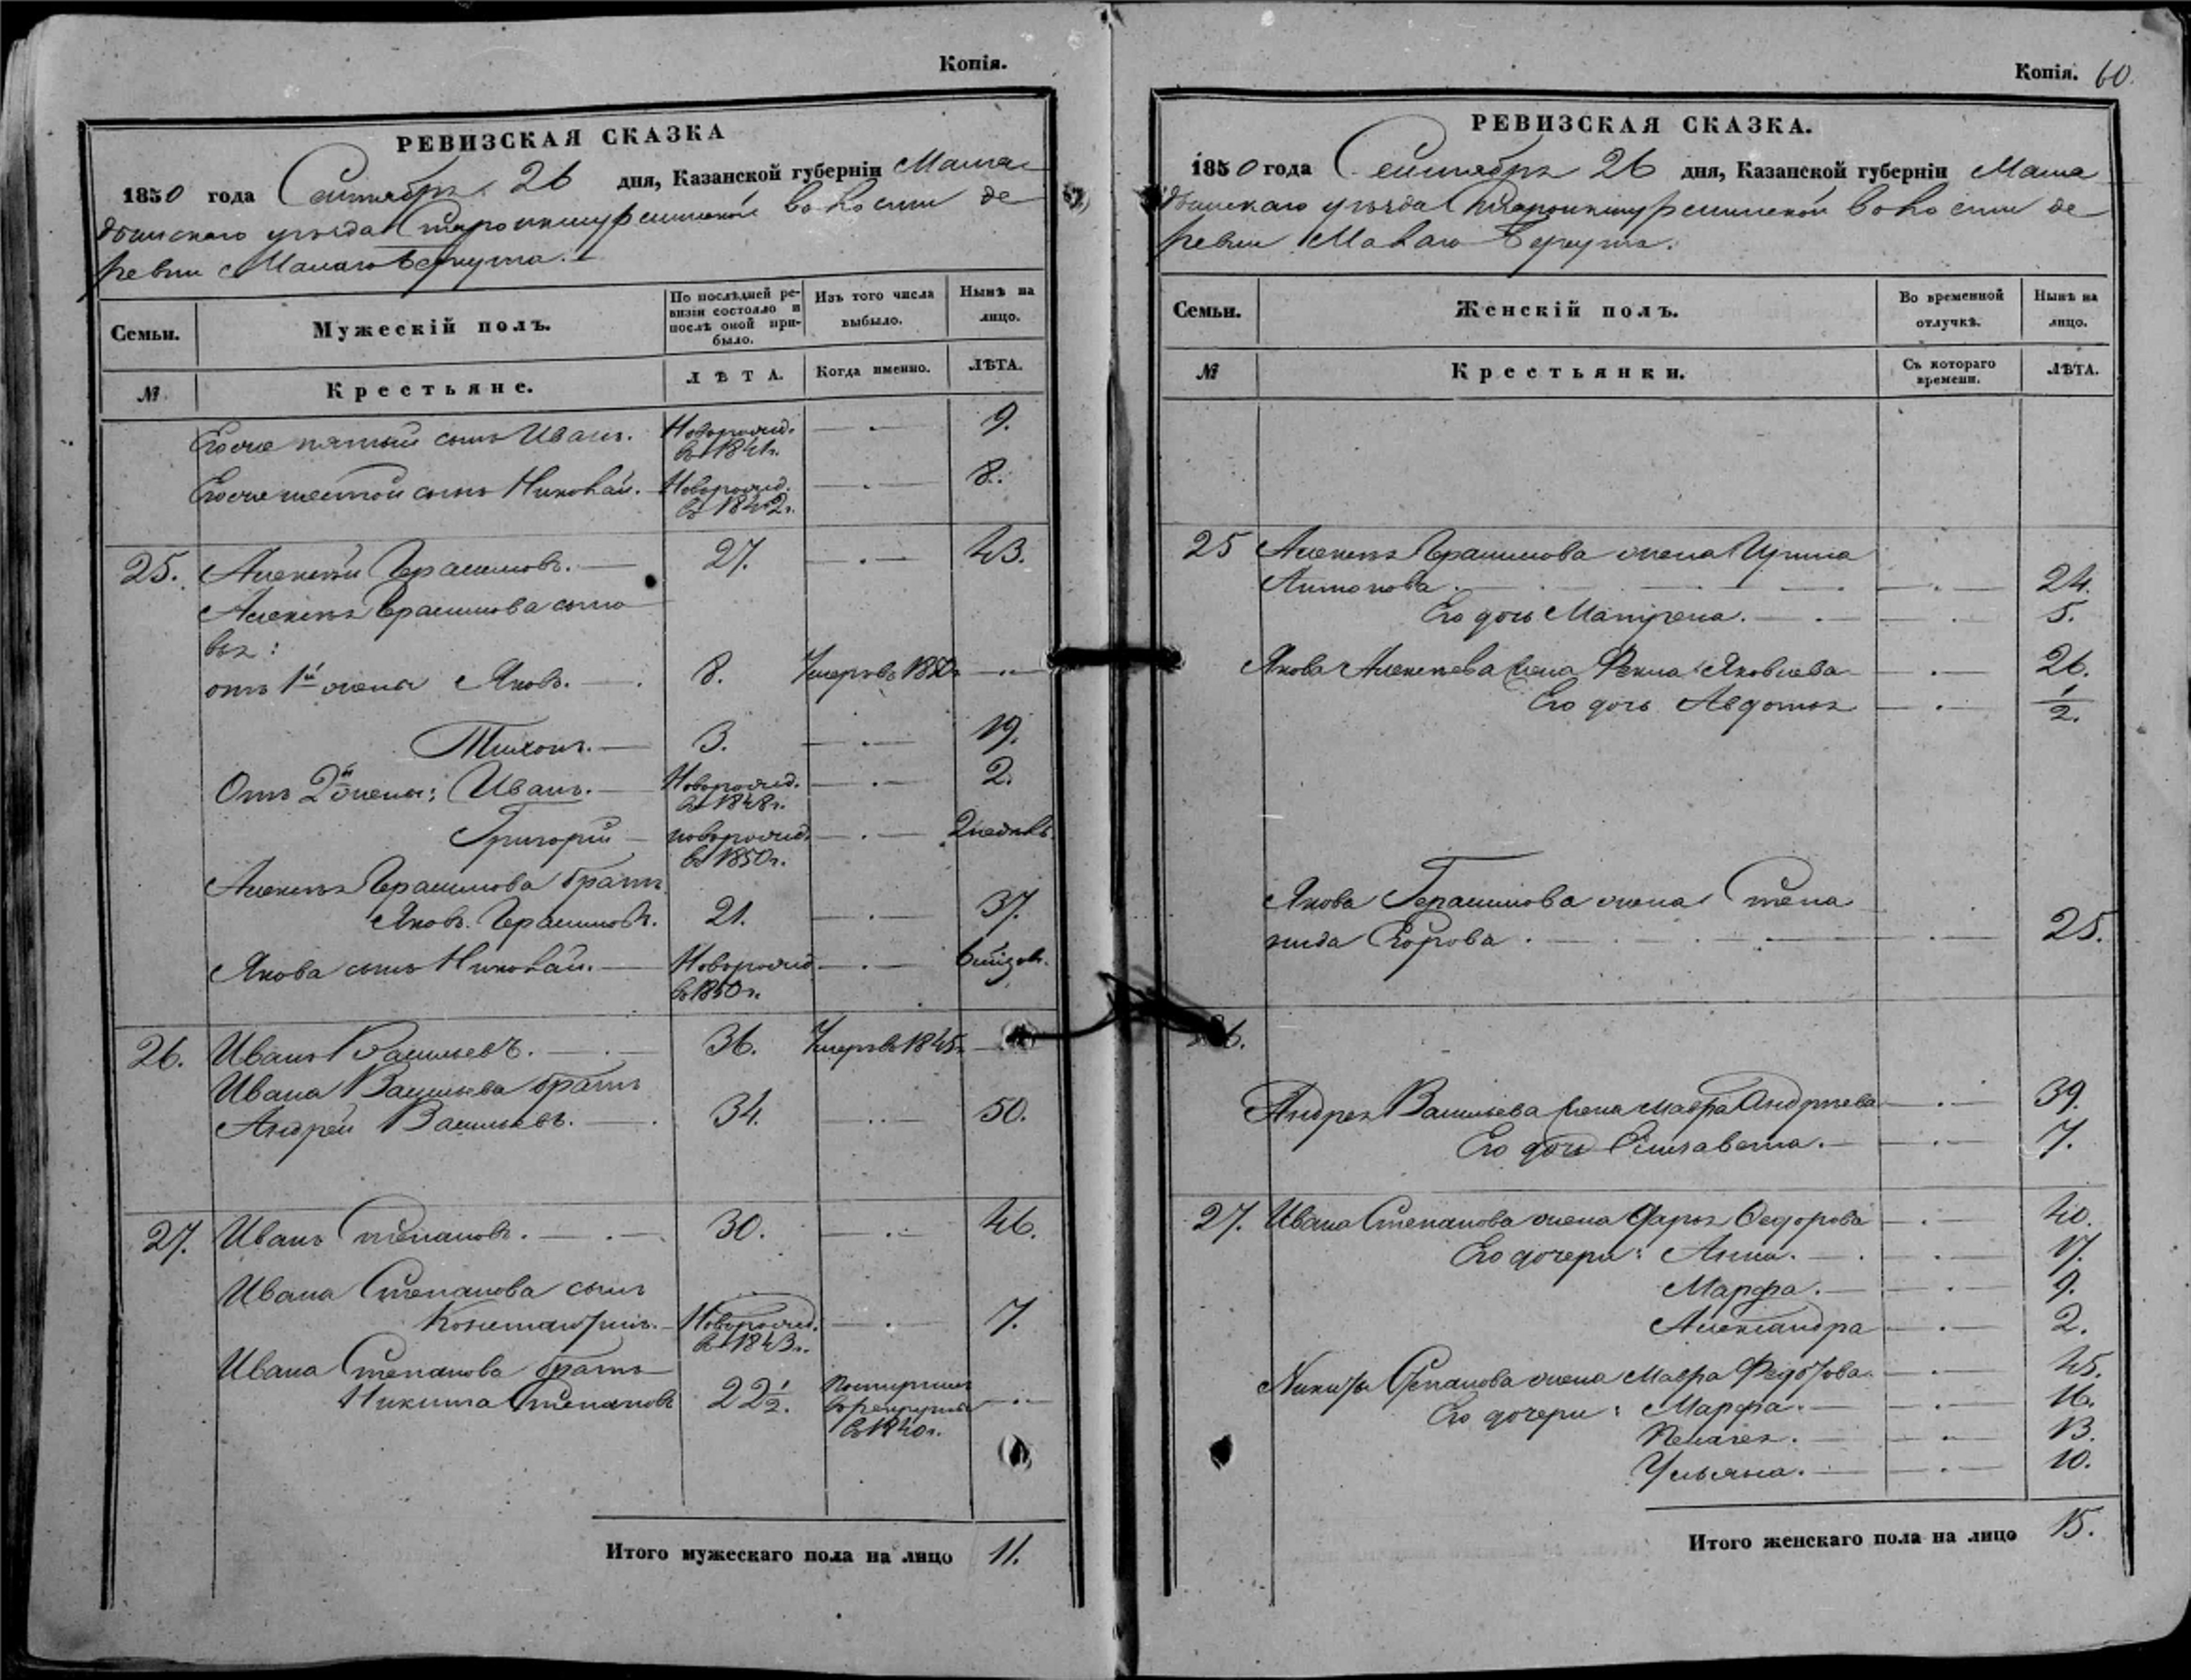 Копія.
РЕВИЗСКАЯ СКАЗКА
1850 года Сентября 26 дня, Казанской губерніи Мама-
дышскаго уѣзда Староикшурминской волости де-
ревни Малаго Беркута.
Семьи.
Мужескій полъ.
По послѣдней ре-
визіи состояло и
послѣ оной при-
было.
Изъ того числа
выбыло.
Нынѣ на
лицо.
№
Крестьяне.
ЛѢТА.
Когда именно.
ЛѢТА.
Егоже пятый сынъ Иванъ. Новорожд. въ 1841г. — . — 9.
Егоже шестой сынъ Николай. Новорожд. въ 1842г. — . — 8.
25. Алексѣй Герасимовъ. — 27. — . — 43.
Алексѣя Герасимова сыно
вья:
отъ 1й жены Яковъ. — 8. Умеръ въ 1850г. — . —
Тихонъ. — 3. — . — 19.
Отъ 2й жены: Иванъ. — Новорожд. въ 1848г. — . — 2.
Григорій — новорожд. въ 1850г. — . — 2 недѣль.
Алексѣя Герасимова братъ
Яковъ Герасимовъ. 21. — . — 37.
Якова сынъ Николай. — Новорожд. въ 1850г. — . —
26. Иванъ Васильевъ. — . — 36. Умеръ въ 1845г. —
Ивана Васильева братъ
Андрей Васильевъ. — . 34. — .. — 50.
27. Иванъ Степановъ. — . — 30. — .. — 46.
Ивана Степанова сынъ
Константинъ. — Новорожд. въ 1843г. — . — 7.
Ивана Степанова братъ
Никита Степановъ 22 1/2. Поступилъ въ рекруты въ 1840г. — . —
Итого мужескаго пола на лицо 11.
Копія. 60.
РЕВИЗСКАЯ СКАЗКА.
1850 года Сентября 26 дня, Казанской губерніи Мама
дышскаго уѣзда Староикшурминской волости де-
ревни Малаго Беркута.
Семьи.
Женскій полъ.
Во временной
отлучкѣ.
Нынѣ на
лицо.
№
Крестьянки.
Съ котораго
времени.
ЛѢТА.
25 Алексѣя Герасимова жена Ирина
Антонова. — . — 24.
Его дочь Матрена. — . — 5.
Якова Алексѣева жена Фекла Яковлева — . — 26.
Его дочь Авдотья — . — 1/2.
Якова Герасимова жена Степа
нида Егорова. — . — 25.
26.
Андрея Васильева жена Мавра Андреева — . — 39.
Его дочь Елизавета. — . — 7.
27. Ивана Степанова жена Дарья Федорова — . — 40.
Его дочери: Анна. — . — 17.
Марфа. — . — 9.
Александра — . — 2.
Никиты Степанова жена Мавра Федотова — . — 45.
Его дочери: Марфа. — . — 16.
Пелагея. — . — 13.
Ульяна. — . — 10.
Итого женскаго пола на лицо 15.